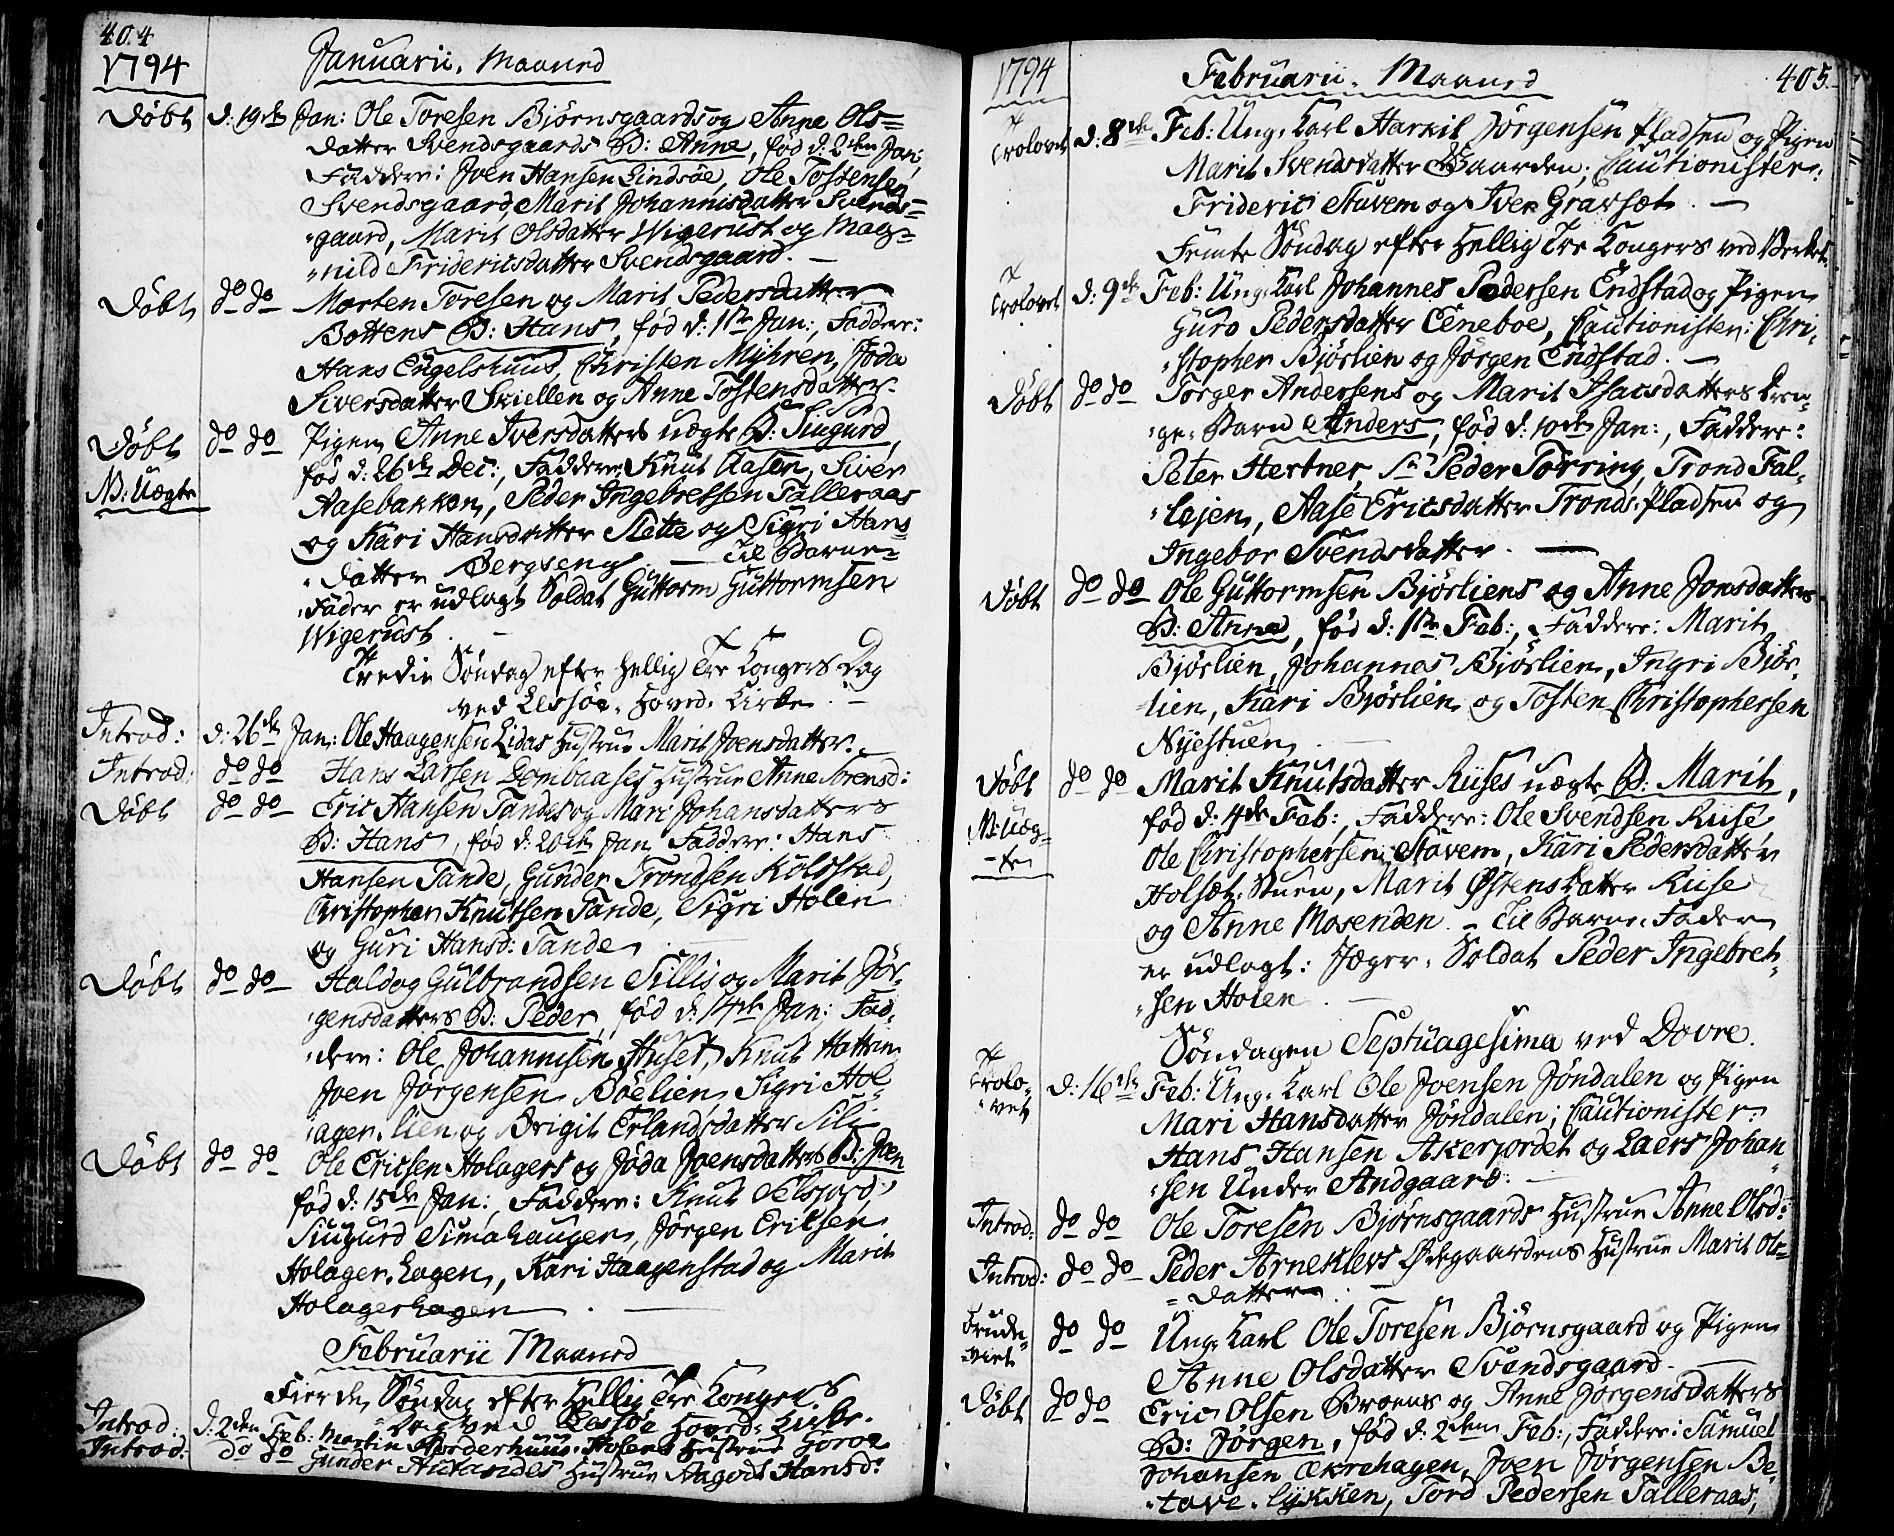 404
1794
Januarii. Maaned
Døbt d: 19de Jan: Ole Toresen Bjørnsgaards og Anne Ols=
datter Svendsgaards B: Anne, fød d. 2den Jan:
Faddere: Joen Hansen Lindsøe, Ole Tostensen
Svendsgaard, Marit Johannisdatter Svends=
=gaard, Marit Olsdatter Wigerust og Mag=
=nild Fridericsdatter Svendsgaard. —
Døbt do do Morten Toresen og Marit Pedersdatter
Bottens B: Hans, fød d: 1ste Jan:, Faddere:
Hans Engelshuus, Christen Myhren, Jøda
Siversdatter Skiellen og Anne Tostensdatter.
Døbt do do Pigen Anne Iversdatters uægte B: Siugurd,
NB: Uægte fød d: 26de Dec:, Faddere: Knut Aasen, Siver
Aasebakken, Peder Ingebretsen Talleraas
og Kari Hansdatter Slette og Sigri Hans
=datter Bergseng. — Til Barne=
=Fader er udlagt Soldat Guttorm Guttormsen
Wigerust. —
Tredie Søndag efter Hellig Tre Kongers Dag
ved Lessøe Hoved-Kirke. —
Introd: d: 26de Jan: Ole Haagensen Lidas Hustrue Marit Joensdatter. —
Introd: do do Hans Larsen Dombaases Hustrue Anne Torensd:
Døbt do do Eric Hansen Tandes og Mari Johansdatters
B: Hans, fød d. 20de Jan Faddere: Hans
Hansen Tande, Gunder Trondsen Koldstad,
Christopher Knutsen Tande, Sigri Holen
og Guri Hansd: Tande.
Døbt do do Haldog Gulbrandsen Sillis og Marit Jør-
gensdatters B: Peder, fød d: 14de Jan: Fad-
=dere: Ole Johannisen Huset, Knut Hatten
Joen Jørgensen Bøelien, Sigri Hol
=ager-lien og Brigit Erlandsdatter Sili
Døbt do do Ole Ericsen Holagers og Jøda Joensdatters B: Joen
fød d: 15de Jan:, Faddere: Knut Selsjord,
Siugurd Simahaugen, Jørgen Ericsen
Holager-hagen, Kari Haagenstad og Marit
Holagerhagen. —
Februarii Maaned
Fierde Søndag efter Hellig Tre Kongers
Dag ved Lessøe Hoved-Kirke.
Introd: d: 2den Feb: Martin Hustrue Goroe
Introd: do do Gunder Hustrue Aagodt Hansd:
1794
Februarii. Maaned
405.
Trolovet d: 8de Feb: Ung-Karl Harkil Jørgensen Pladsen og Pigen
Marit Svendsdatter Gaarden; Cautionister:
Frideric Stavem og Iver Gravsæt. —
Femte Søndag efter Hellig Tre Kongers ved Verket.
Trolovet d: 9de Feb: Ung-Karl Johannes Pedersen Endstad og Pigen
Guro Pedersdatter Ceneboe, Cautionister: Chri-
=stopher Bjørlien og Jørgen Endstad. —
Døbt do do Torger Andersens og Marit Isacsdatters Dren-
=ge-Barn Anders, fød d: 10de Jan:, Faddere:
Peter Hertner, Sr Peder Torring, Trond Fal-
=lejen, Aase Ericsdatter Tronds-Pladsen og
Ingebor Svendsdatter. —
Døbt do do Ole Guttormsen Bjørliens og Anne Jonsdatters
B: Anne, fød d: 1ste Feb:, Faddere: Marit
Bjørlien, Johannes Bjørlien, Ingri Bjør-
lien, Kari Bjørlien og Tosten Christophersen
Nyestuen. —
Døbt do do Marit Knutsdatter Ruses uægte B: Marit,
NB: Uæg-
-te fød d: 4de Feb:, Faddere: Ole Svendsen Ruse
Ole Christophersen Stavem, Kari Pedersdatter
Holsæt-Stuen, Marit Østensdatter Ruse
og Anne Mosenden. — Til Barne-Fader
er udlagt: Jæger-Soldat Peder Ingebret-
=sen Holen. —
Søndagen Septuagesima ved Dovre.
Trolo-
=vet d: 16de Feb: Ung-Karl Ole Joensen Jøndalen og Pigen
Mari Hansdatter Jøndalen; Cautionister:
Hans Hansen Akerjordet og Laers Johan
=sen Under Andgaard. —
Introd: do do Ole Toresen Bjørnsgaards Hustrue Anne Olsd:
Introd: do do Peder Arneklevs Ødegaardens Hustrue Marit Ols=
=datter. —
Trude-
=viet do do Ung-Karl Ole Toresen Bjørnsgaard og Pigen
Anne Olsdatter Svendsgaard. —
Døbt do do Eric Olsen Broens og Anne Jørgensdatters
B: Jørgen, fød d: 2den Feb:, Faddere: Samuel
Johansen Ækrehagen, Joen Jørgensen Be-
=tave-lykken, Tord Pedersen Talleraas,